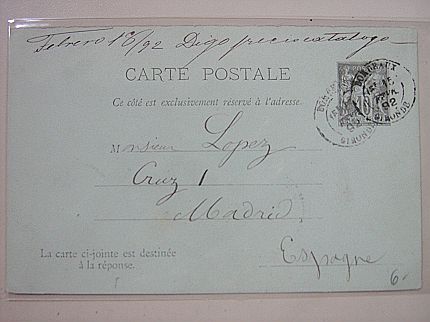 Febrero 18/92 Digo precio catalogo
CARTE POSTALE
Ce côté est exclusivement réservé à l'adresse.
BORDEAUX
FÉVR.
92
GIRONDE
Monsieur Lopez
Cruz 1
Madrid
Espagne
La carte ci-jointe est destinée
à la réponse.
6